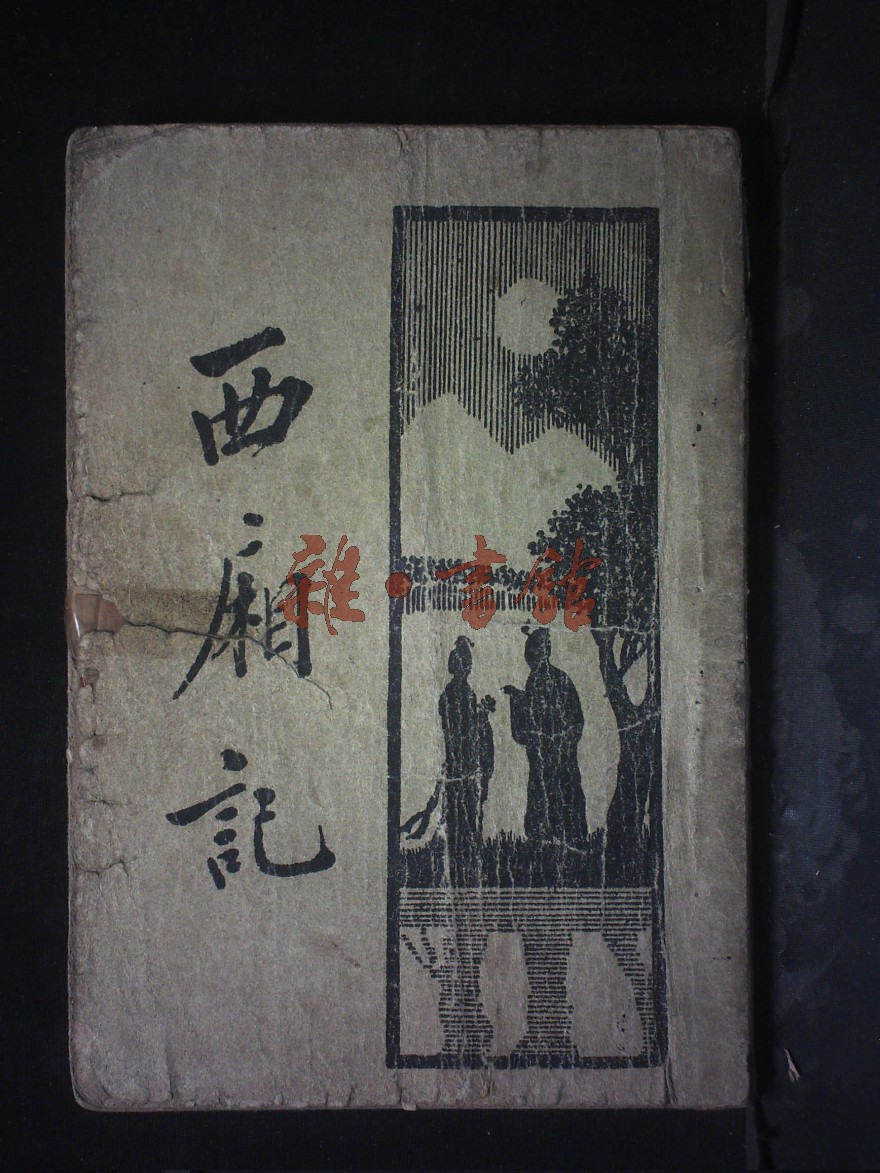 西廂記
雜·書館